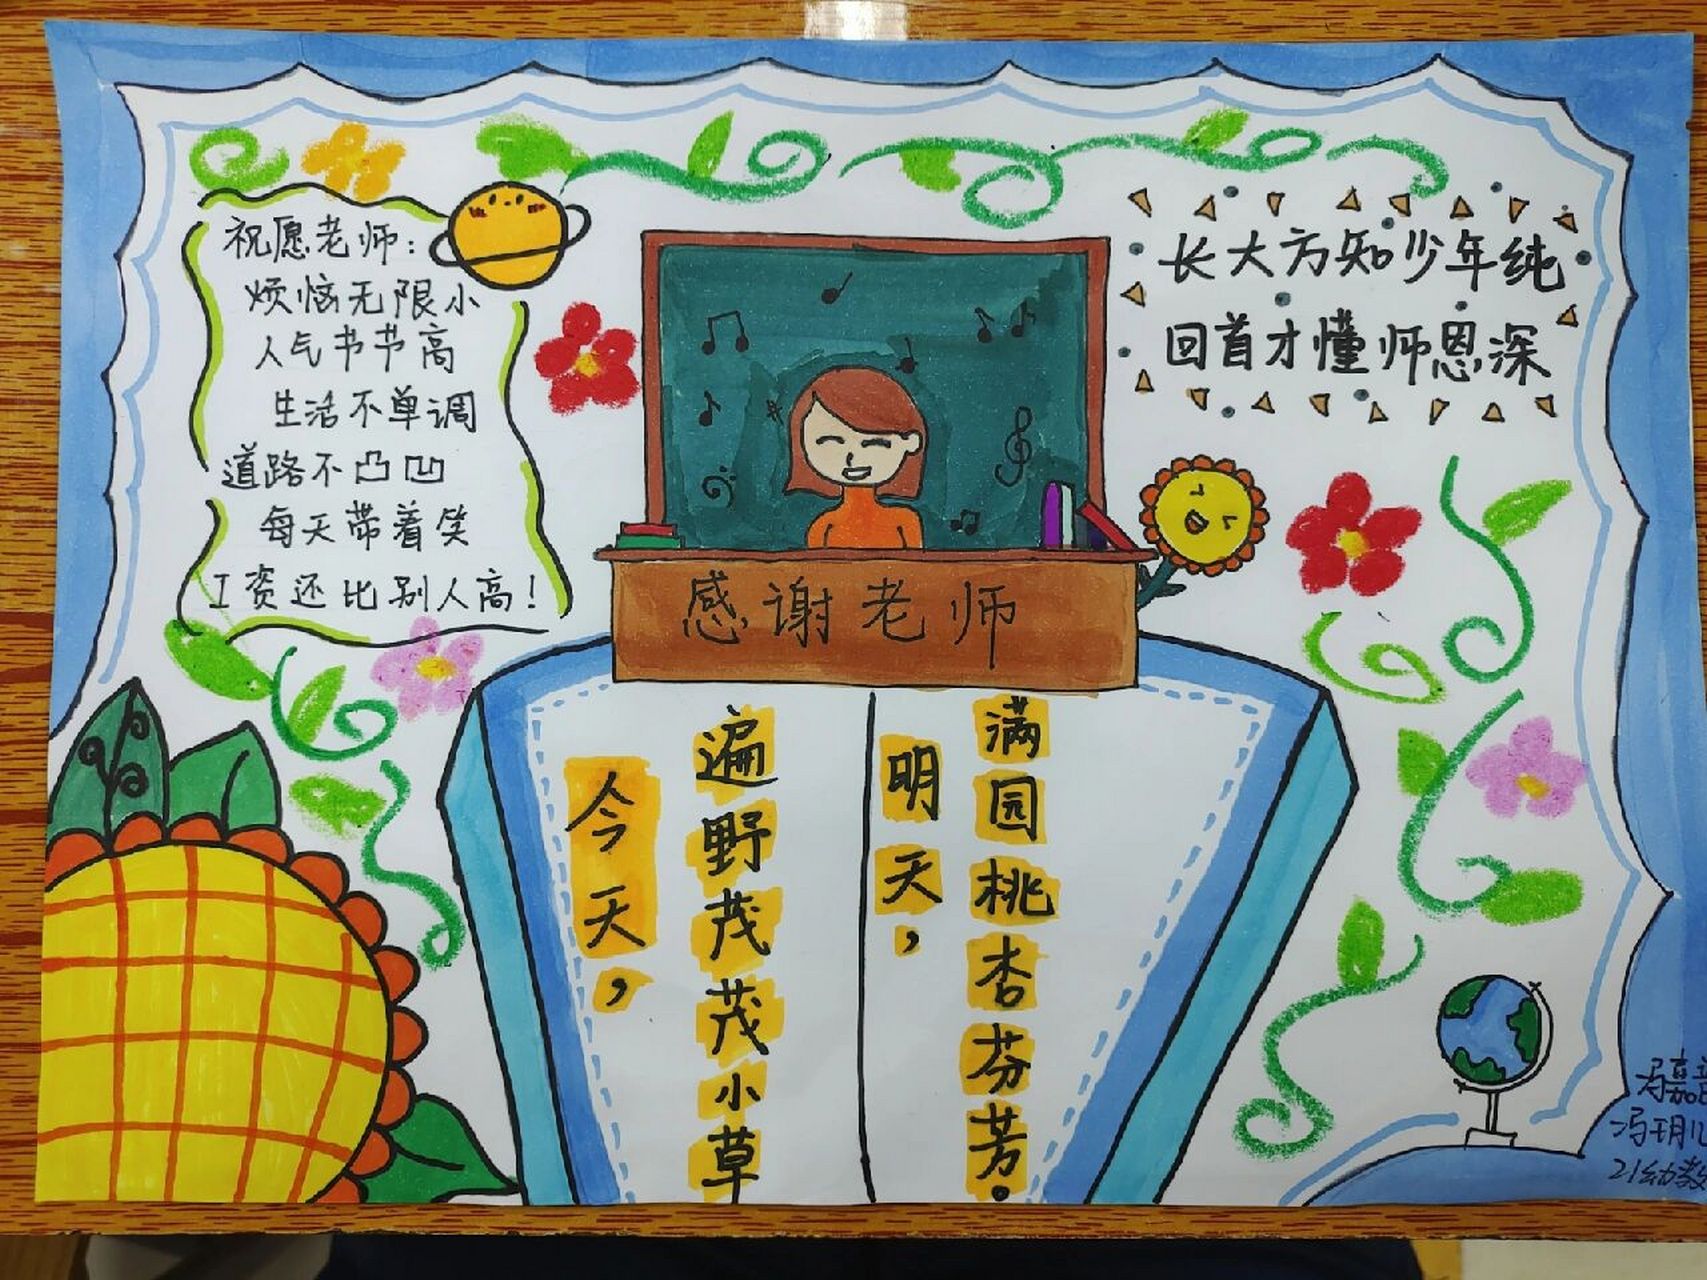 祝愿老师:
烦恼无限小
人气节节高
生活不单调
道路不凸凹
每天带着笑
工资还比别人高!
长大方知少年纯
回首才懂师恩深
感谢老师
今天,
遍野茂茂小草
明天,
满园桃杏芬芳。
冯玥
21幼教